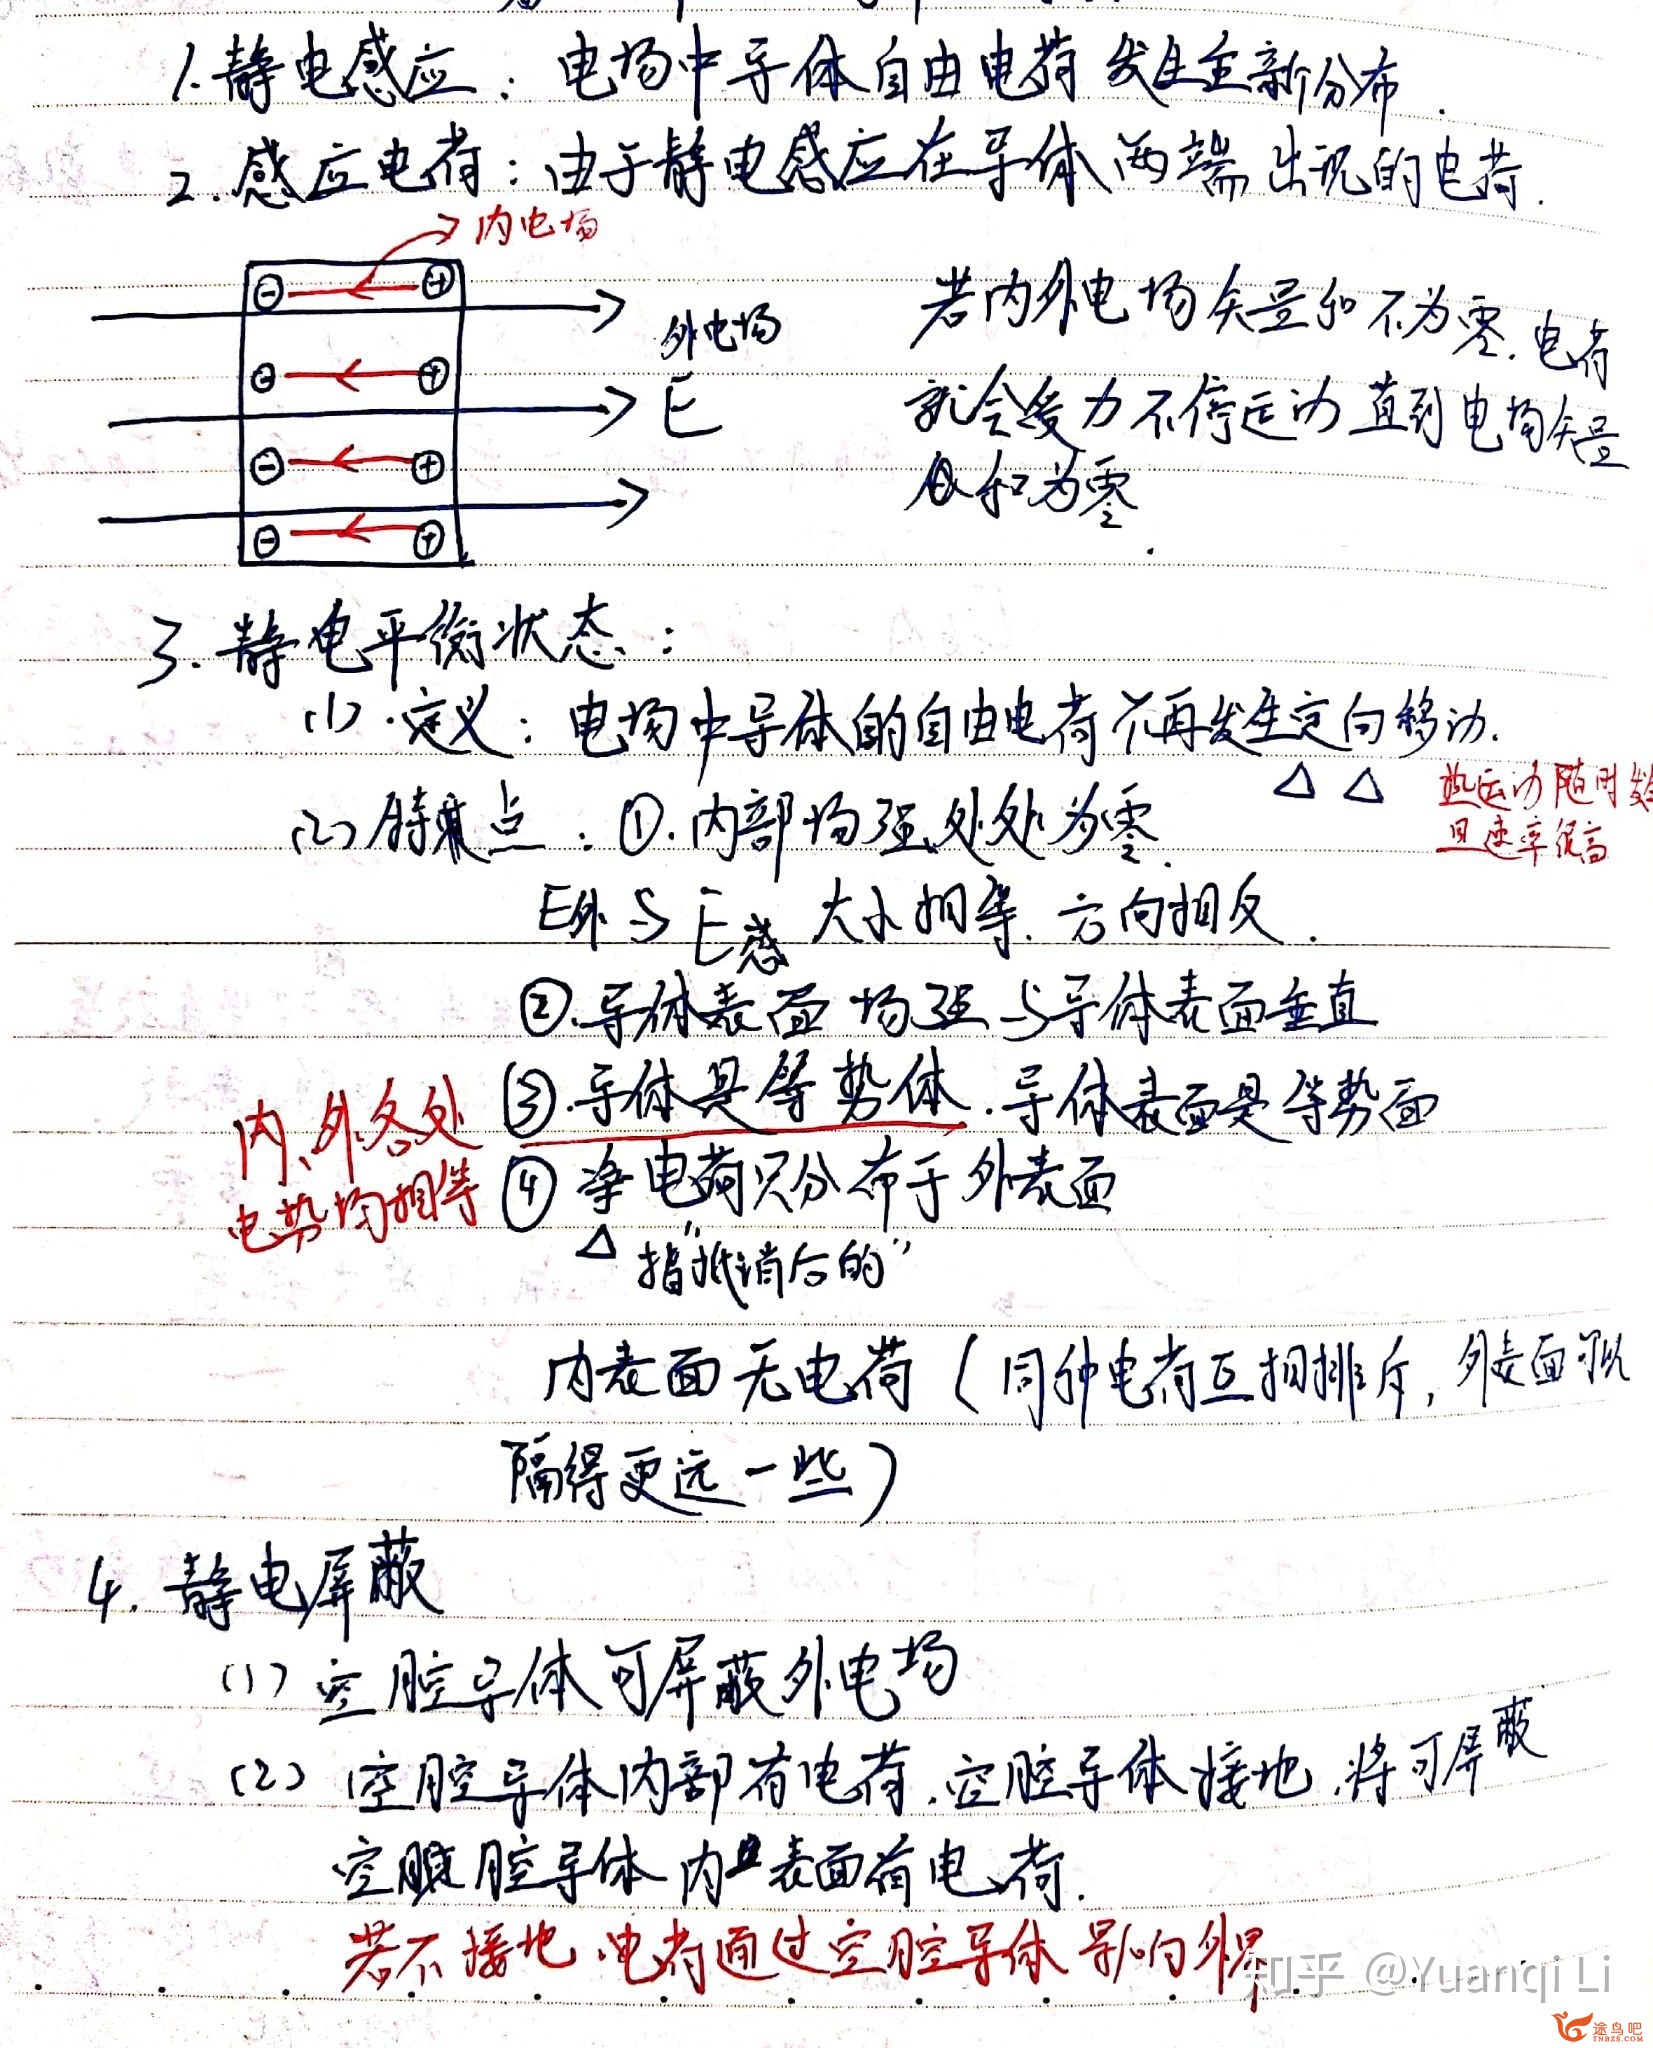 1. 静电感应：电场中导体自由电荷发生重新分布.
2. 感应电荷：由于静电感应在导体两端出现的电荷.
内电场
外电场
E
若内外电场矢量和不为零.电荷
就会受力不停运动直到电场矢量
和为零.
3. 静电平衡状态：
(1).定义：电场中导体的自由电荷不再发生定向移动.
热运动随时发生
且速率很高
(2)特点：①.内部场强处处为零.
E外与E感大小相等.方向相反.
②.导体表面场强与导体表面垂直
③.导体是等势体.导体表面是等势面
内、外各处
电势均相等
④净电荷只分布于外表面
指"抵消后的"
内表面无电荷(同种电荷互相排斥，外表面可以
隔得更远一些)
4. 静电屏蔽
(1)空腔导体可屏蔽外电场
(2)空腔导体内部有电荷.空腔导体接地.将可屏蔽
空腔导体内表面有电荷.
若不接地.电荷通过空腔导体影响外界.
知乎 @Yuanqi Li
途鸟吧
TNBZS.COM